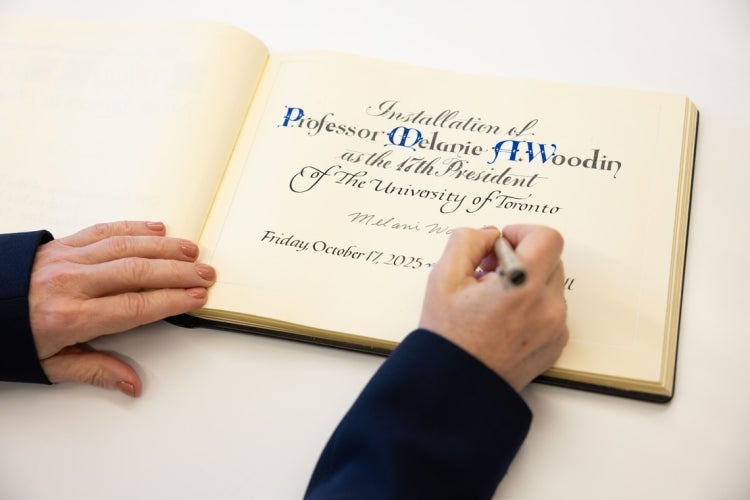 Installation of
Professor Melanie A. Woodin
as the 17th President
Of The University of Toronto
Melani Wo
Friday, October 17, 2025